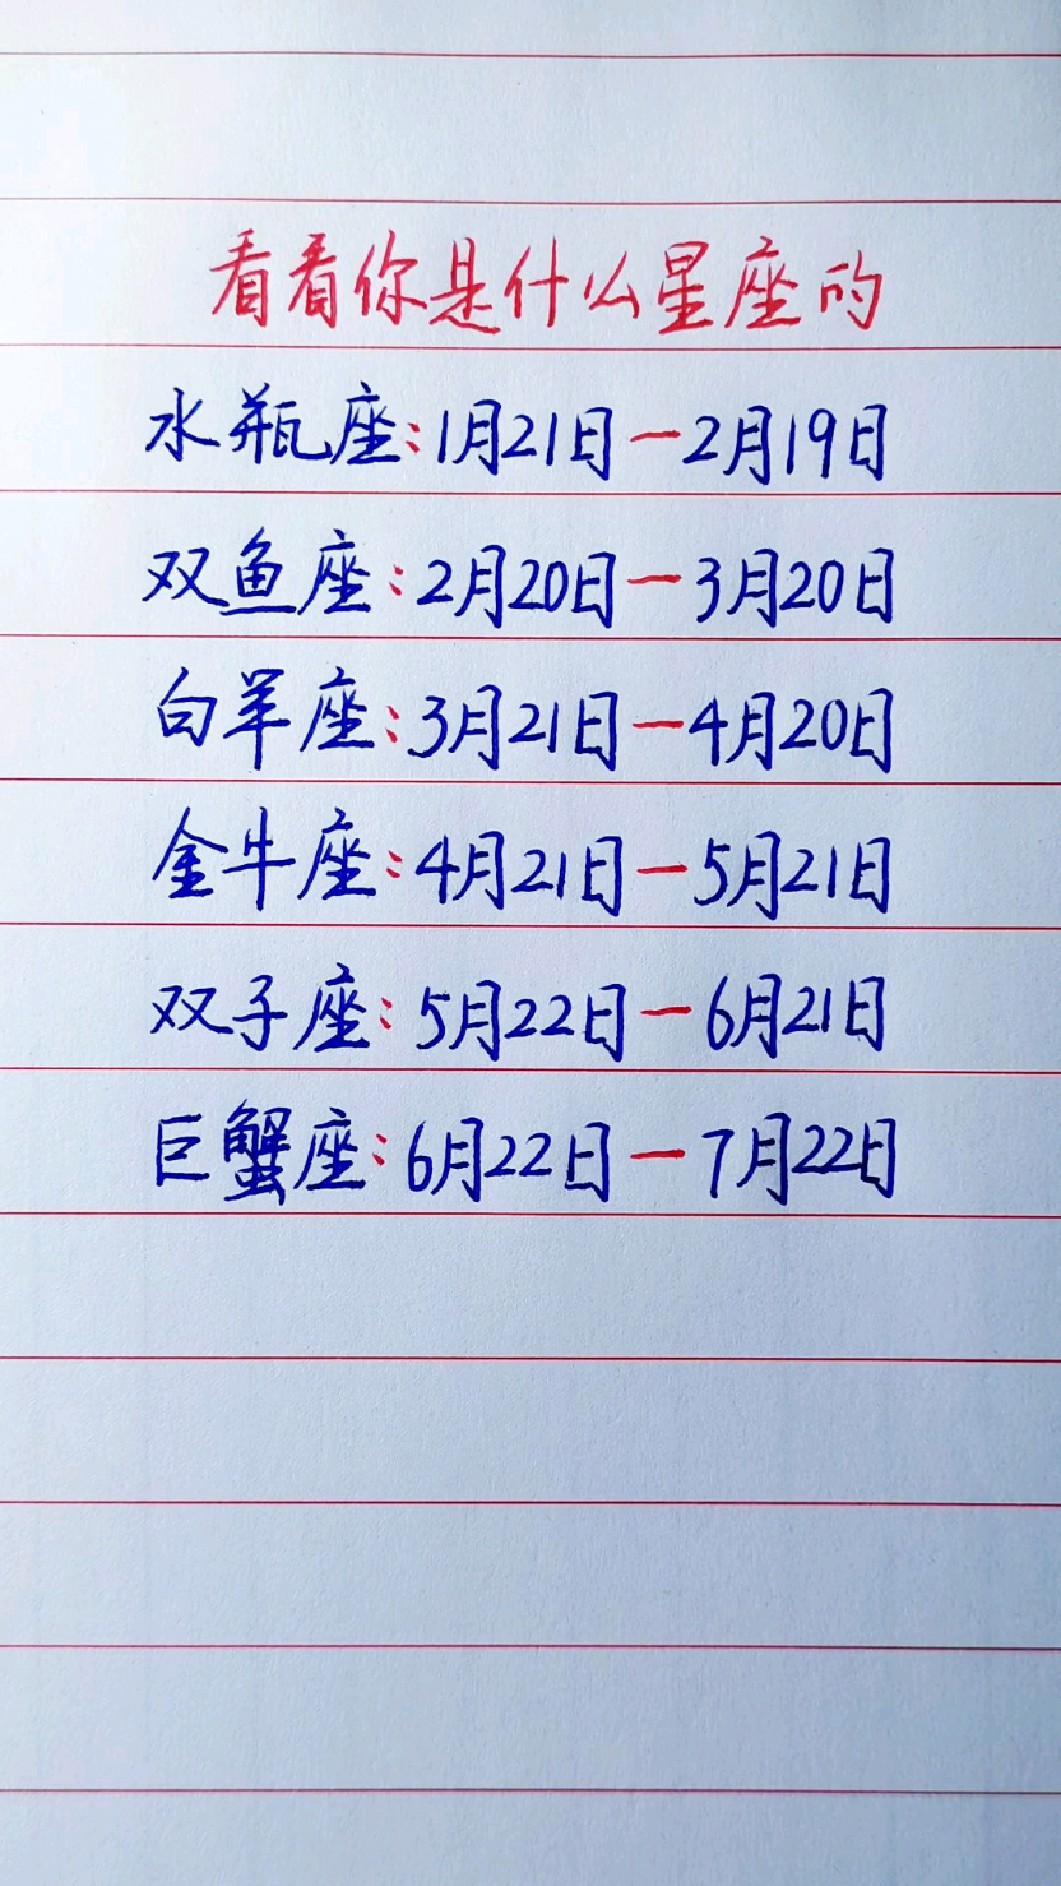 看看你是什么星座的
水瓶座:1月21日一2月19日
双鱼座:2月20日一3月20日
白羊座:3月21日一4月20日
金牛座:4月21日一5月21日
双子座:5月22日一6月21日
巨蟹座:6月22日一7月22日